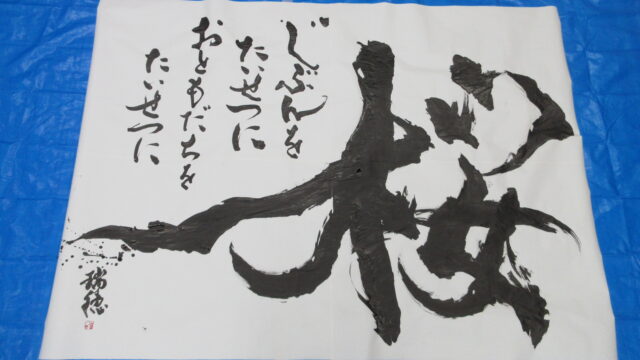 桜
じぶんを
たいせつに
おともだちを
たいせつに
瑞穂